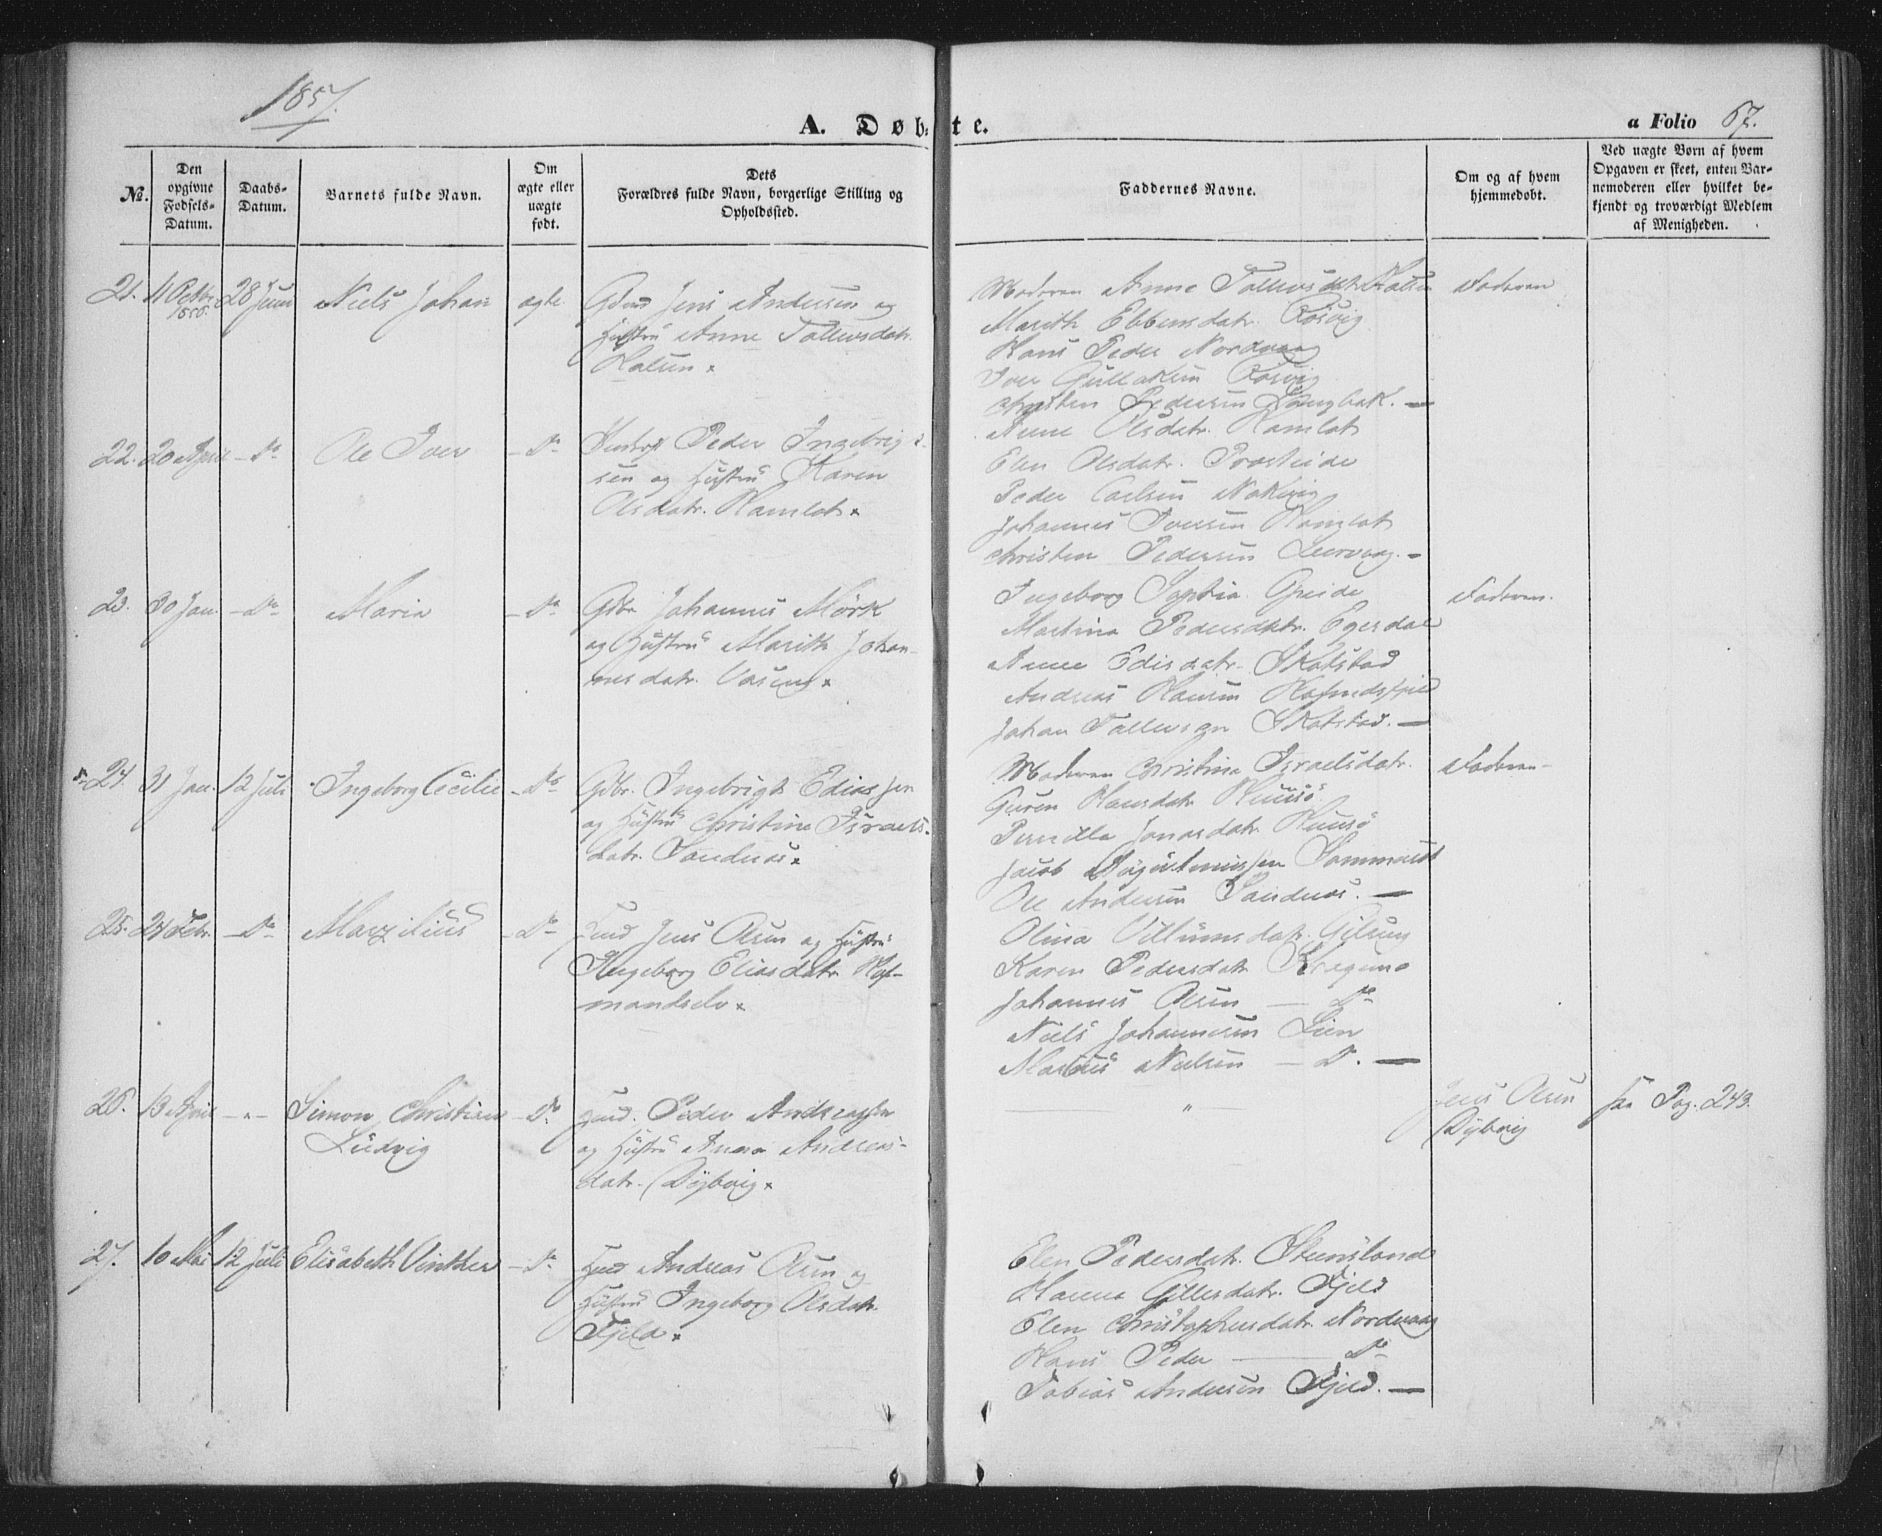 1857.
A. Døb-te.
a Folio 67.
No.
Den opgivne Fødsels-Datum.
Daabs-Datum.
Barnets fulde Navn.
Om ægte eller uægte født.
Dets Forældres fulde Navn, borgerlige Stilling og Opholdssted.
Faddernes Navne.
Om og af hvem hjemmedøbt.
Ved uægte Børn af hvem Opgaven er skeet, enten Barnemoderen eller hvilket bekjendt og troværdigt Medlem af Menigheden.
21. 11 Octbr 1856. 28 Juni Niels Johan ægte
Gbrd Jens Andersen og
Hustru Anne Tollevsdatr.
Halsen
Moderen Anne Tollevsdatr Halsen
Marith Ebbensdatr. Rosvig
Hans Peder Nordvaag
Iver Gullaksen Rosvig
Christen Pedersen Langbak. —
Faderen
22. 20 April - Do Ole Iver - Do
Peder Ingebrig-
sen og Hustru Karen
Olsdatr. Hamlot
Anne Olsdatr. Hamlot
Elen Olsdatr.
Peder Carlsen
Johannes Iversen Hamlot
Christen Pedersen Leervaag. -
23. 30 Jan. - Do Maria - Do
Gdbr Johannes Mørk
og Hustru Marith Johan-
nesdatr.
Ingeborg Sophia
Martina Pedersdatr. Egersdal
Anne Edisdatr. Skotstad
Andreas Hansen
Johan Tollevsen Skotstad. —
Faderen.
24. 31 Jan. 12 Juli Ingeborg Cecilie - Do
Gdbr. Ingebrigt Ediassen
og Hustru Christine Israels-
datr. Sandnæs
Moderen Christine Israelsdatr.
Guren Hansdatr Huusø
Pernille Jonasdatr Huusø
Jacob
Ole Andersen Sandnæs. —
Faderen -
25. 24 Febr. - Do - Do
Jens Olsen og Hustru
Ingeborg Eliasdatr. Hof-
mandselv
Olina Villumsdatr.
Karen Pedersdatr
Johannes Olsen — Do
Niels Johannesen Lien
Nielsen — Do. —
26. 13 April - " - Simon Christian - Do
Ludvig
Huusmd. Peder Andreassen
og Hustru Anna Andreas-
datr. Dybvig
"
Jens Olsen
Dybvig
see Pag. 243.
27. 10 Mai 12 Juli Elisabeth Vinther - Do
Andreas Olsen og
Hustru Ingeborg Olsdatr.
Fjeld
Elen Pedersdatr. Steensland
Hanna Gillesdatr. Fjeld
Elen Christophersdatr. Nordvaag
Hans Peder — Do
Tobias Andersen Fjeld. —